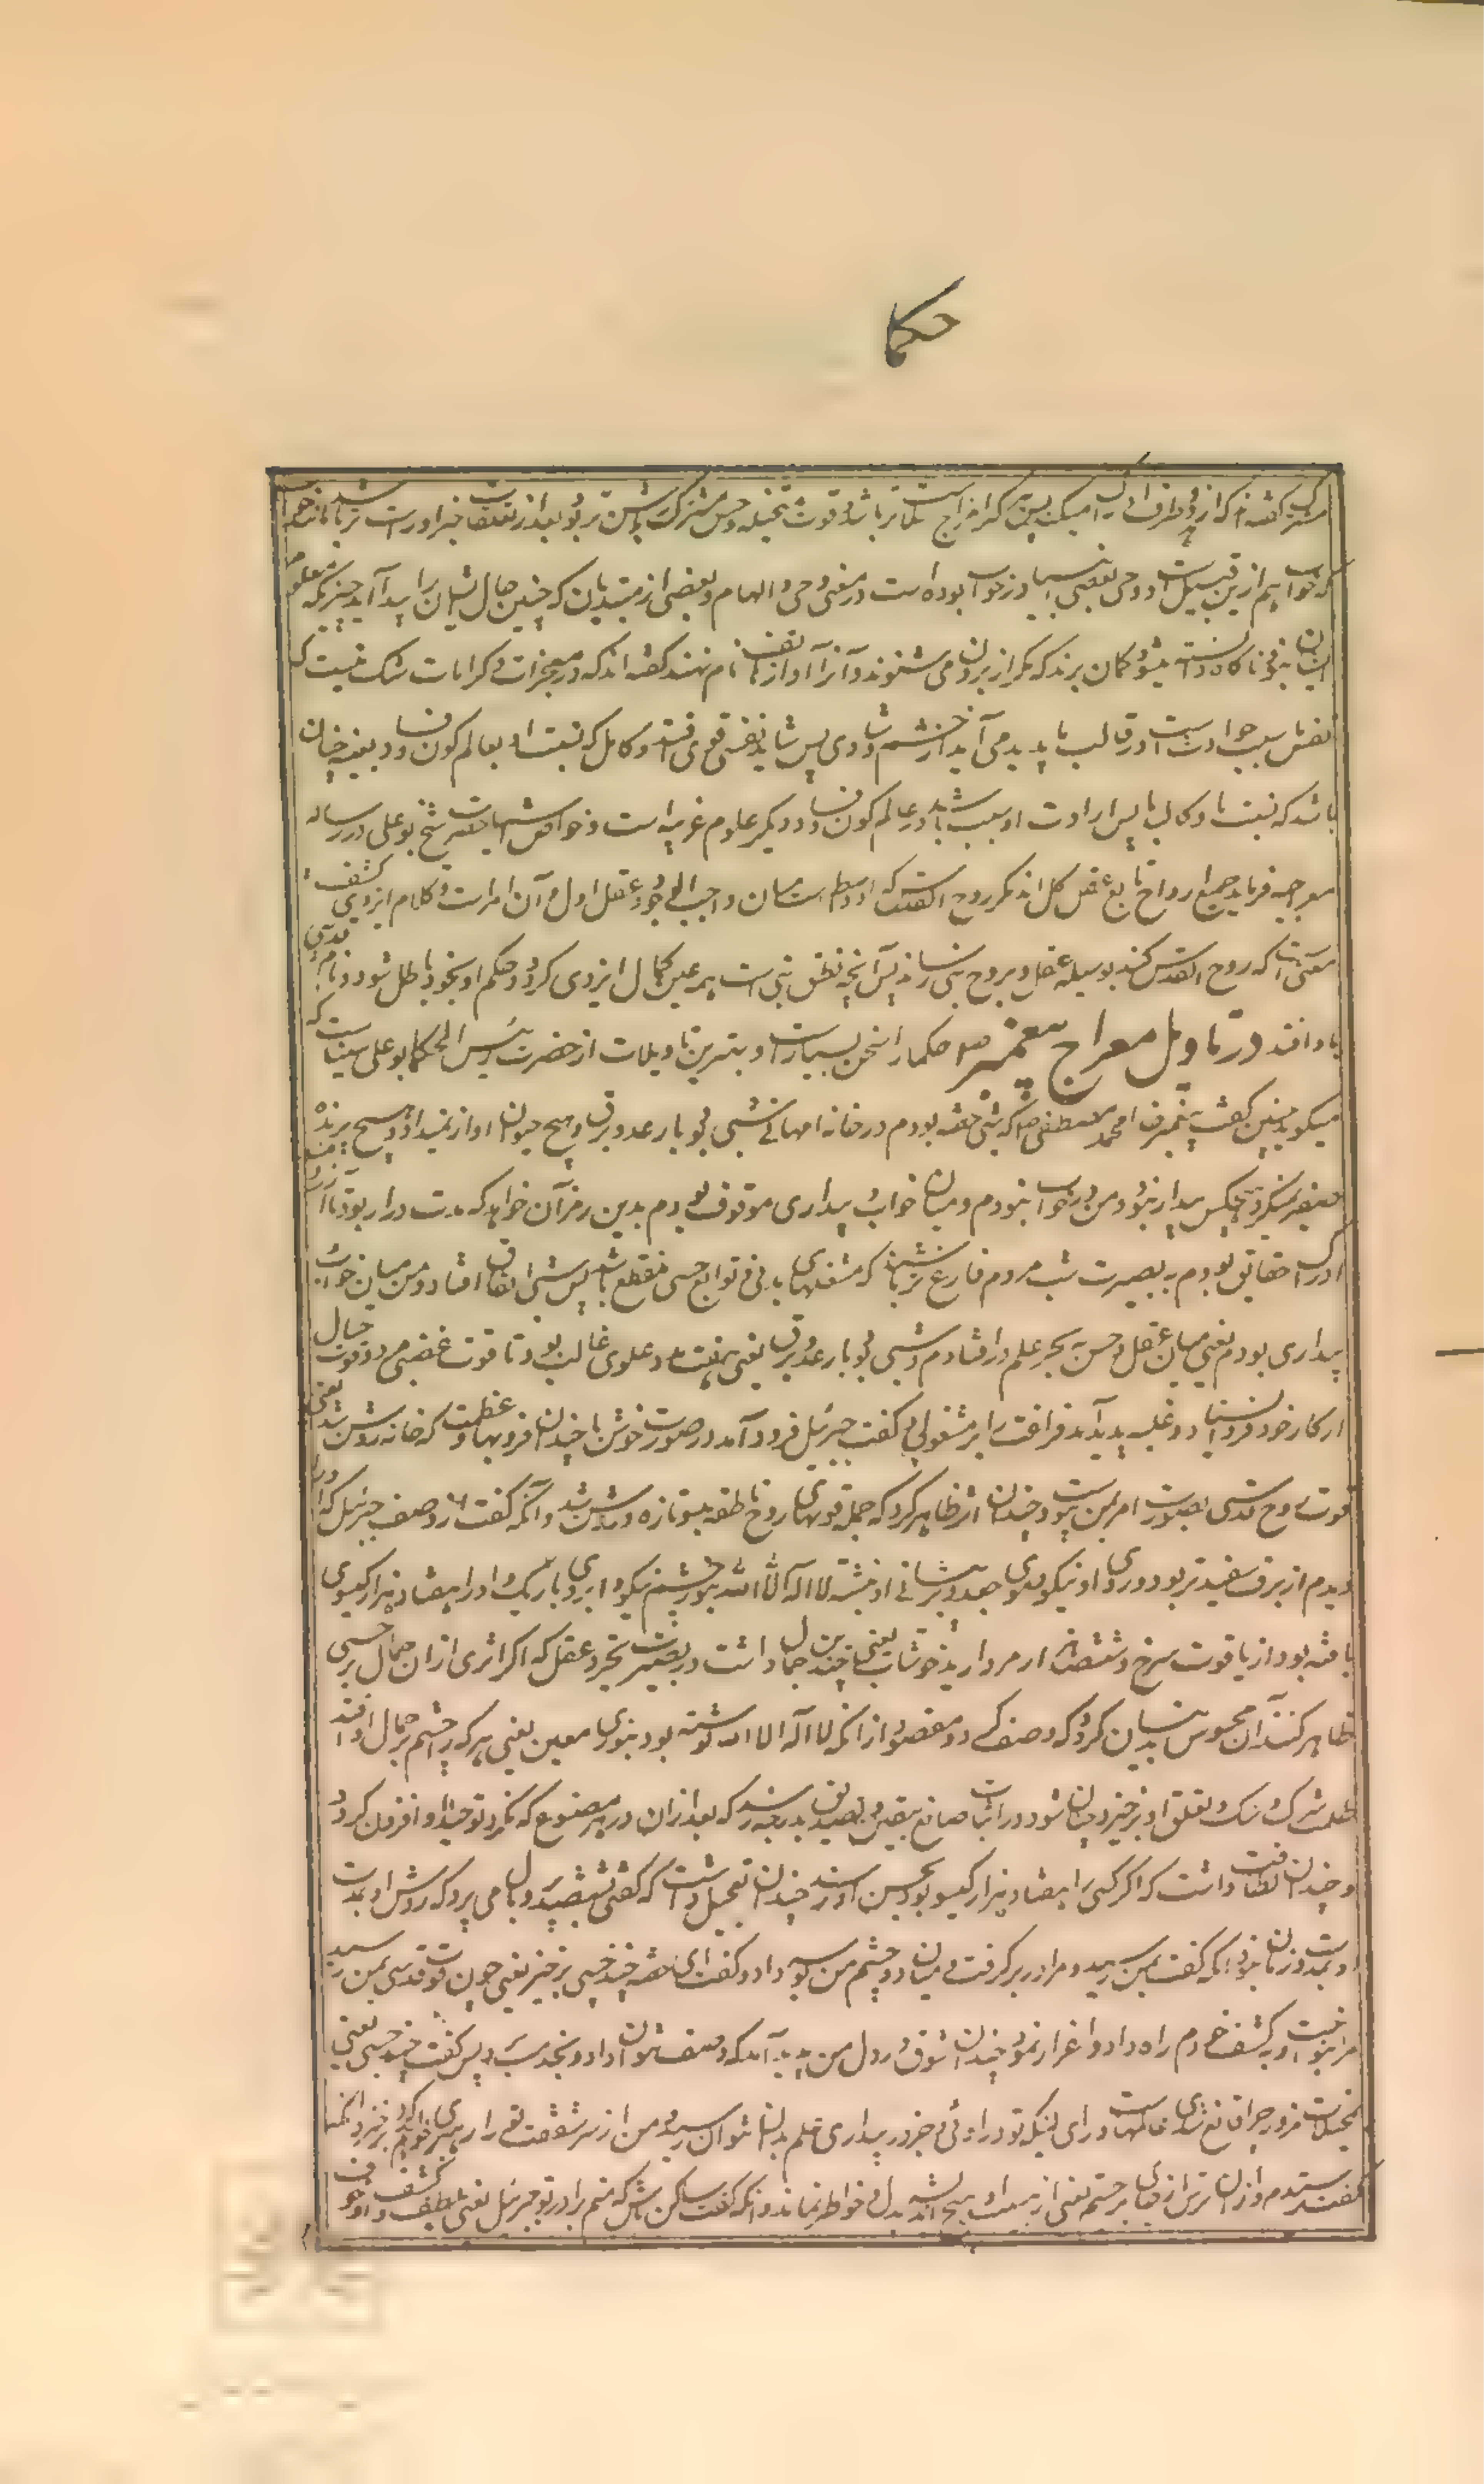 حکما
مشترک گفته اند که از دو طرف ادراک میکند پس هر کرا مزاج سالم تر باشد و قوت متخیله و حس مشترک روشن تر بود بعد از تعلقات خبر او راست تر باشد
که خواب هم ازین قبیل است و وحی بعضی انبیا در خواب بوده است در معنی وحی و الهام و بعضی از مبتدیان که چنین حال ایشان را پیدا آید چیزیکه معلوم
ایشان نبود ناگاه دانسته میشود گمان برند که مگر از برون می شنوند و آنرا آواز هاتف نام نهند گفته اند که در معجزات و کرامات شک نیست که
نفس سبب حوادث است در قالب ما پدید می آید از خشم و شادی پس شاید نفسی قوی افتد و کامل که نسبت او بعالم کون و فساد بعینه چنان
باشد که نسبت ما و کالبد ما پس ارادت او سبب باشد در عالم کون و فساد و دیگر علوم غریبه است و خواص حضرت شیخ بوعلی در رساله
معراجیه فرماید جمیع ارواح تابع عقل کل اند مگر روح القدس که او واسطه است میان واجب الوجود و عقل اول و آن امر است و کلام ایزدی کشف
معنی است که روح القدس کند بوسیله عقل و بروح نبی رساند پس آنچه نطق نبی است همه عین کمال ایزدی گردد و حکم او بخود باطل شود و نام قدسی
باو افتد در تاویل معراج پیغمبر صلعم حکما را سخن بسیار است و بهترین تاویلات از حضرت رئیس الحکما بوعلی سینا است که
میگوید چنین گفت پیغمبر ما محمد مصطفی صلعم که شبی خفته بودم در خانه امهانی شبی بود با رعد و برق و هیچ حیوان آواز نمیداد و هیچ پرنده
صفیر نمیکرد و هیچکس بیدار نبود و من در خواب نبودم و میان خواب و بیداری موقوف بودم بدین رمز آن خواهد که مدت دراز بود تا آرزومند
ادراک حقایق بودم به بصیرت شب مردم فارغ تر باشند که مشغلهای بدنی و موانع حسی منقطع باشد پس شبی اتفاق افتاد و من میان خواب و
بیداری بودم یعنی میان عقل و حس به بحر علم در افتادم و شبی بود با رعد و برق یعنی هفت مدد علوی غالب بود تا قوت غضبی مرد و قوت خیال
از کار خود فرو ایستاد و غلبه پدید آمد فراغت را بر مشغولی گفت جبرئیل فرود آمد در صورت خوش با چندان فر و بها و عظمت که خانه روشن شد یعنی
قوت روح قدسی بصورت امر بمن پیوست و چندان اثر ظاهر کرد که جمله قوتهای روح ناطقه بدو تازه و روشن شد و آنکه گفت در وصف جبرئیل که او را
دیدم از برف سفیدتر بود و روی او نیکو و موی جعد و بر پیشانی او نبشته لا اله الا الله بود چشم نیکو و ابروی باریک و او را هفتاد هزار گیسوی
بافته بود از یاقوت سرخ و ششصد هزار مروارید خوشاب یعنی چندین جمال داشت در بصیرت مجرد عقل که اگر اثری از ان جمال بر حسی
ظاهر کنند آن محسوس بدینسان گردد که وصف کرد و مقصود از آنکه لا اله الا الله نوشته بود بنوری معین یعنی هر که را چشم بر جمال او افتد
ظلمت شرک و شک و تعلق از و برخیزد و چنان شود در اثبات صانع بیقین و تصدیق بدرجه رسد که بعد از ان در هر مصنوع که نگرد توحید او افزون گردد
و چندان لطافت داشت که اگر کسی را هفتاد هزار گیسو بود بحسن او نرسد چندان تعجیل داشت که گفتی بششصد پر و بال می پرد که روش او بمدت
و زمان نبود آنکه گفت بمن رسید و مرا در بر گرفت و میان دو چشم من بوسه داد و گفت ای خفته چند خسپی برخیز یعنی چون قوت قدسی بمن رسید
مرا بنواخت و بکشف خودم راه داد و اعزاز نمود چندان شوق در دل من پدید آمد که وصف نتوان داد و بخدمت پس گفت چند خسپی یعنی
بمخیلات مزور چرا قانع شدی عالمهاست ورای اینکه تو در اوئی و جز در بیداری علم بدان نتوان رسید و من از سر شفقت ترا رهبری خواهم کرد برخیز و آنکه
گفت بترسیدم و از ان ترس از جای برجستم یعنی از هیبت او هیچ اندیشه بدل و خاطر نماند و آنکه گفت ساکن باش که منم برادر تو جبرئیل یعنی بلطف و کشف او خوف